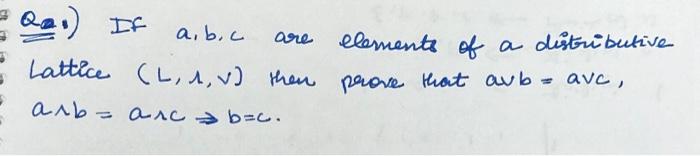 Q2.) If a, b, c are elements of a distributive
Lattice (L, ∧, ∨) then prove that a∨b = a∨c,
a∧b = a∧c ⇒ b=c.